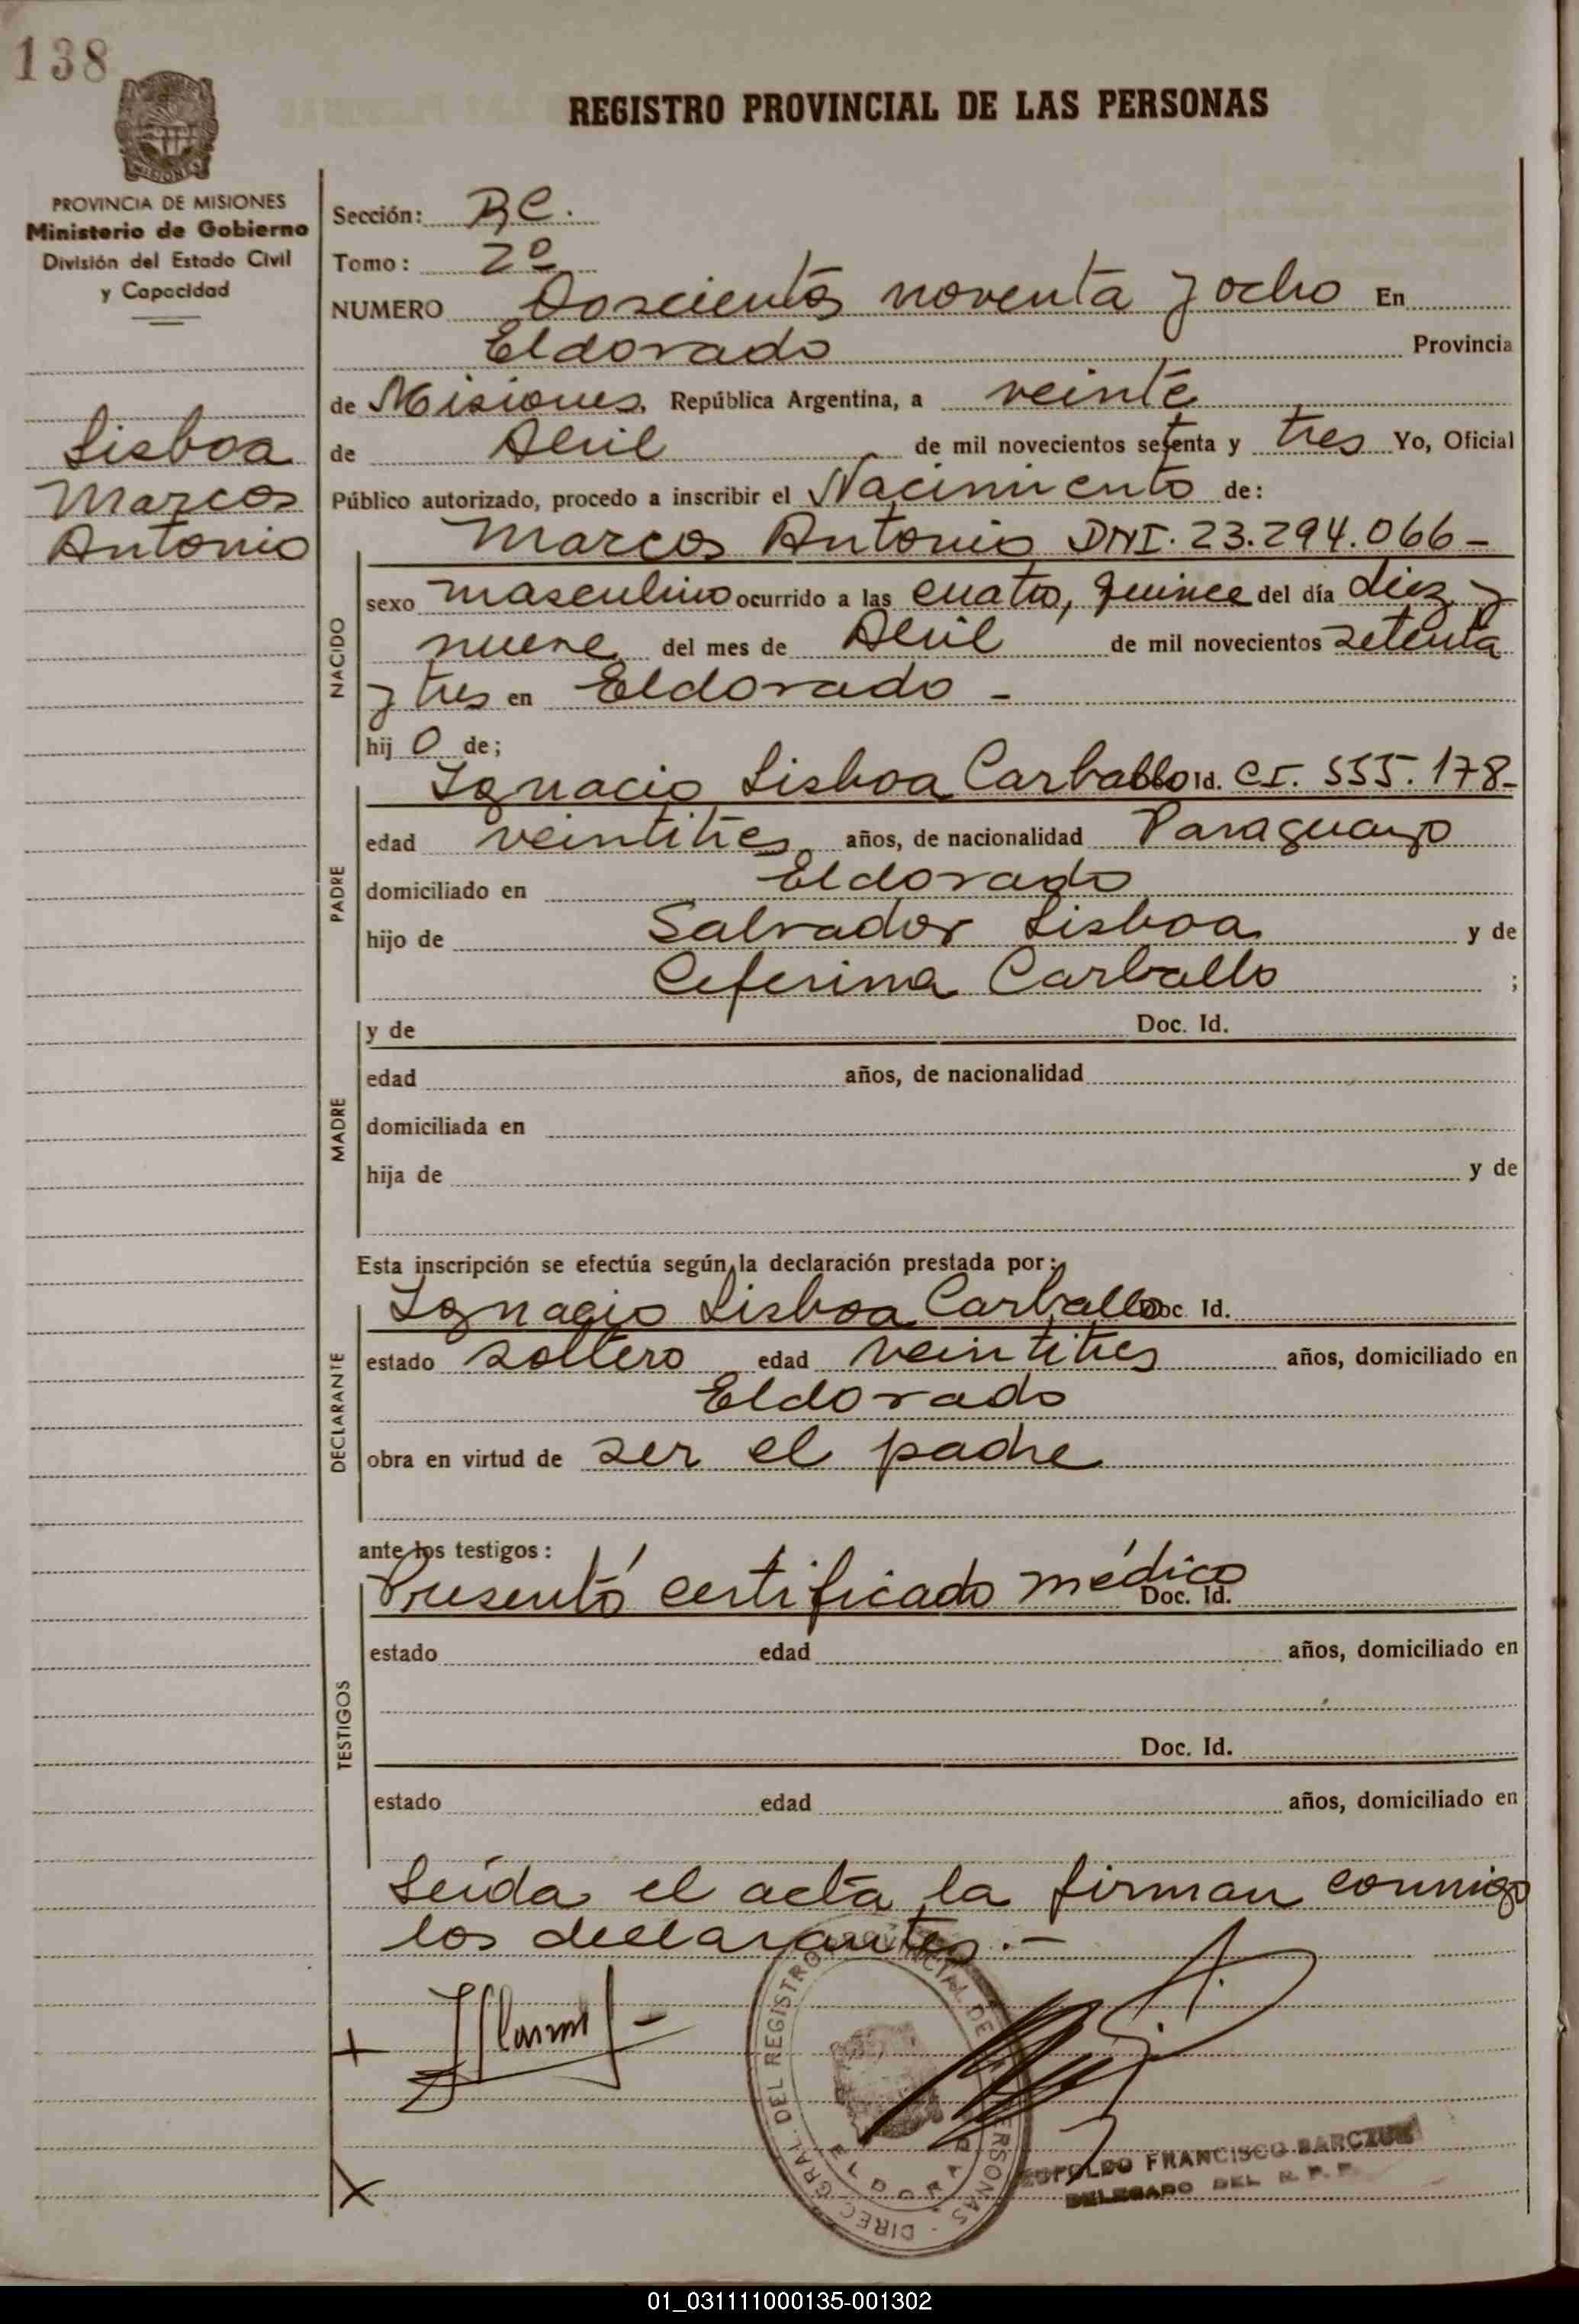 138
REGISTRO PROVINCIAL DE LAS PERSONAS
MISIONES
PROVINCIA DE MISIONES
Ministerio de Gobierno
División del Estado Civil
y Capacidad
Lisboa
Marcos
Antonio
Sección:
Tomo: 2º
NUMERO Doscientos noventa y ocho En
Eldorado Provincia
de Misiones, República Argentina, a veinte
de Abril de mil novecientos setenta y tres Yo, Oficial
Público autorizado, procedo a inscribir el Nacimiento de:
Marcos Antonio DNI. 23.294.066-
NACIDO
sexo masculino ocurrido a las cuatro, quince del día diez y
nueve del mes de Abril de mil novecientos setenta
y tres en Eldorado -
hij o de;
PADRE
Ignacio Lisboa Carballo Id. CI. 555.178-
edad veintitres años, de nacionalidad Paraguayo
domiciliado en Eldorado
hijo de Salvador Lisboa y de
Ceferina Carballo ;
MADRE
y de Doc. Id.
edad años, de nacionalidad
domiciliada en
hija de y de
Esta inscripción se efectúa según la declaración prestada por:
DECLARANTE
Ignacio Lisboa Carballo Doc. Id.
estado soltero edad veintitres años, domiciliado en
Eldorado
obra en virtud de ser el padre
ante los testigos:
TESTIGOS
Presentó certificado médico Doc. Id.
estado edad años, domiciliado en
Doc. Id.
estado edad años, domiciliado en
Leída el acta la firman conmigo
los declarantes.-
DIREC. GRAL. DEL REGISTRO PROVINCIAL DE PERSONAS
ELDORADO
LEOPOLDO FRANCISCO BARCZUK
DELEGADO DEL R. P. P.
01_031111000135-001302